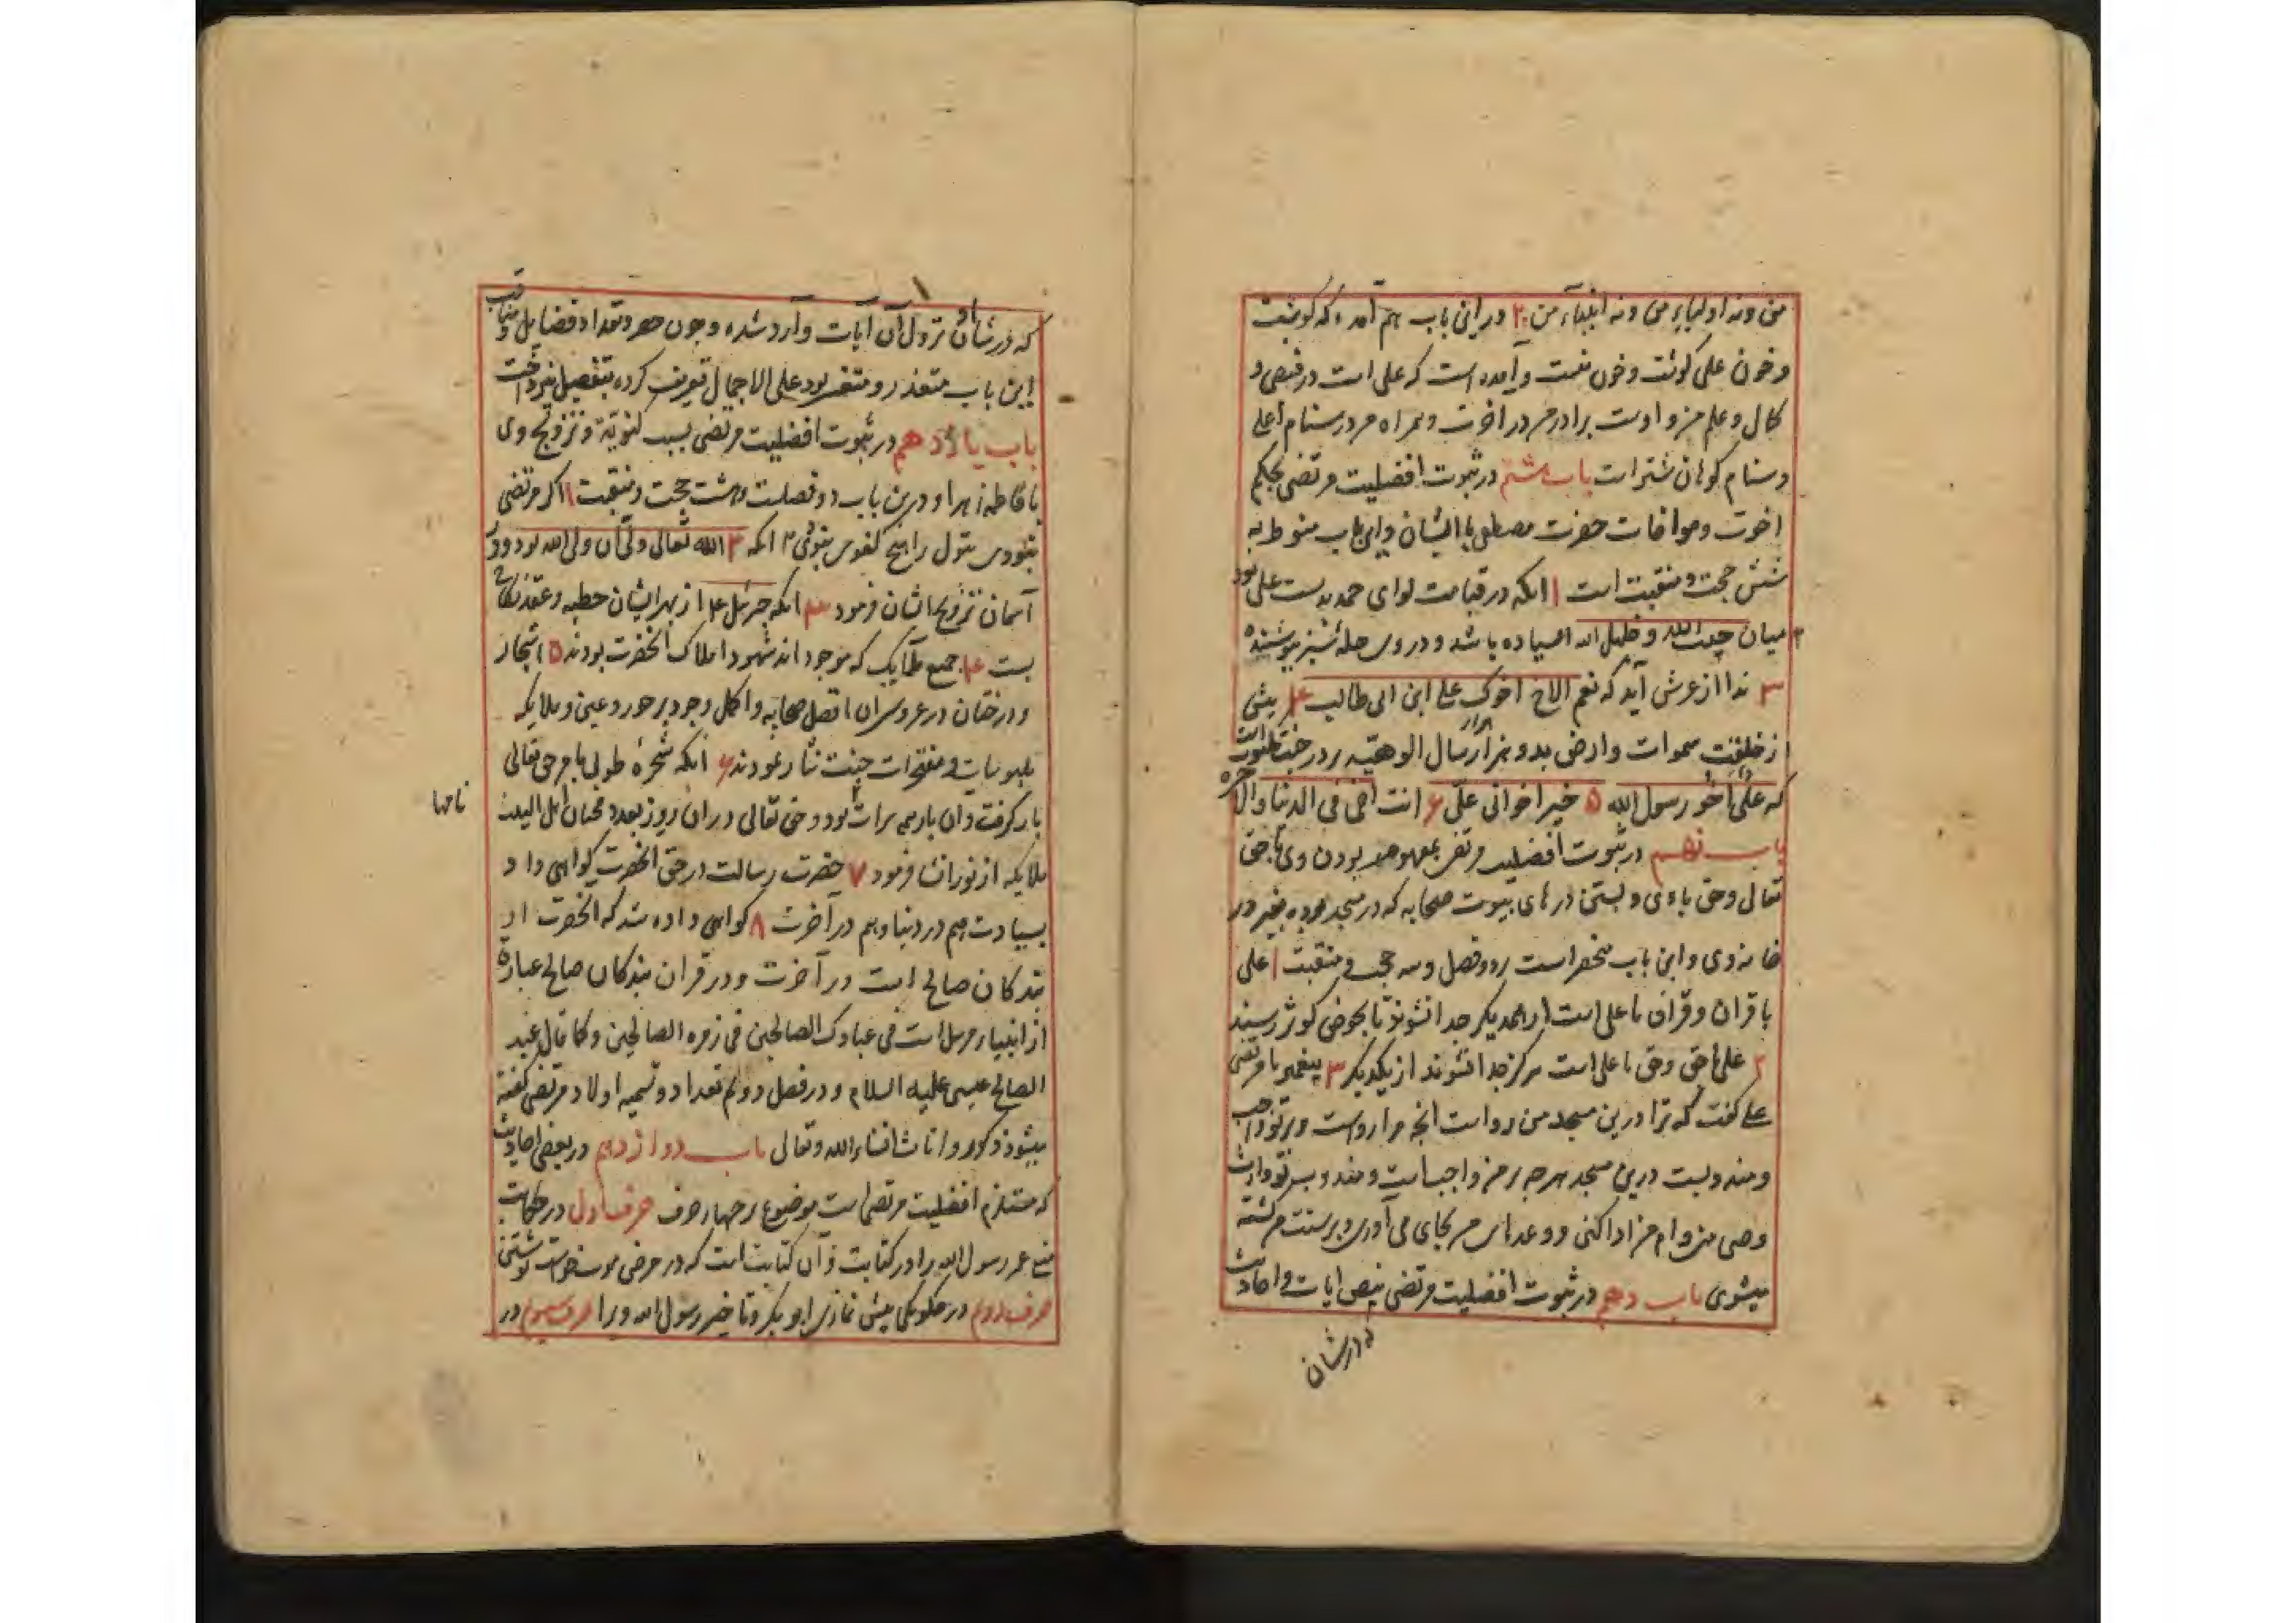 من ونه اولیاء من ونه انبیاء من ۲ ودر این باب هم آمده که گوشت
وخون علی گوشت وخون منست وآمده است که علی است در قمیص و
کمال وعلم من واوست برادر من در آخرت وهمراه من در سنام اعلی
وسنام کوهان شتر است باب هشتم در ثبوت افضلیت مرتضی بحکم
اخوت ومواخات حضرت مصطفی با ایشان واین باب منوط به
شش حجت ومنقبت است ۱ انکه در قیامت لوای حمد بدست علی بود
۲ میان حبیب الله وخلیل الله استاده باشد ودر وی حله سبز پوشنده
۳ ندا از عرش آید که نعم الاخ اخوک علی ابن ابی طالب ۴ پیش
از خلقت سموات وارض بدو هزار سال بر در جنت
که علی اخو رسول الله ۵ خیر اخوانی علی ۶ انت اخی فی الدنیا والاخره
باب نهم در ثبوت افضلیت مرتضی بودن وی با حق
تعالی وحق با وی وبستن درهای بیوت صحابه که در مسجد بود بغیر در
خانه وی واین باب منحصر است بر دو فصل وسه حجت ومنقبت ۱ علی
با قران وقران با علی است از همدیگر جدا نشوند تا بحوض کوثر رسند
۲ علی با حق وحق با علی است هرگز جدا نشوند از یکدیگر ۳ پیغمبر با مرتضی
علی گفت که ترا درین مسجد من رواست انچه مرا رواست وبر تو واجب
ومندوبست درین مسجد هرچه بر من واجبست ومندوب بر تو وارث
وصی من وام مرا ادا کنی و وعدهای من بجای می آوری وبر سنت من کشته
میشوی باب دهم در ثبوت افضلیت مرتضی بنص ایات واحادیث
که در شان
که در شان او نزول آن آیات وارد شده وچون حصر وتعداد فضایل ومناقب
این باب متعذر ومتعسر بود علی الاجمال تعریف کرده بتفصیل نپرداخت
باب یازدهم در ثبوت افضلیت مرتضی بسبب کفویة وتزویج وی
با فاطمه زهرا ودرین باب دو فصلست وهشت حجت ومنقبت ۱ اگر مرتضی
نبودی بتول را هیچ کفوی نبودی ۲ انکه الله تعالی ولی آن ولی الله بود ودر
آسمان تزویج ایشان فرمود ۳ انکه جبرئیل از بهر ایشان خطبه وعقد نکاح
بست ۴ جمیع ملایک که موجود اند شهود املاک آنحضرت بودند ۵ اشجار
ودرختان در عروسی ان افضل صحابه واکمل وجود بر حور وعین وملایکه
جنت نثار نمودند ۶ انکه شجره طوبی بامر حق تعالی
بار گرفت وان بار همه برات بود وحق تعالی در ان روز بعدد محبان اهل البیت
نامها
ملایکه از نور انشا فرمود ۷ حضرت رسالت در حق آنحضرت گواهی داد
بسیادت هم در دنیا وهم در آخرت ۸ گواهی داده شد که آنحضرت از
بندگان صالح است در آخرت ودر قران بندگان صالح عبارة
از انبیاء مرسل است فی عبادک الصالحین فی زمره الصالحین وکما قال عبد
الصالح عیسی علیه السلام ودر فصل دوم تعداد وتسمیه اولاد مرتضی گفته
میشود ذکور واناث انشاء الله وتعالی باب دوازدهم در بعضی احادیث
که مستلزم افضلیت مرتضی است موضوع بر چهار حرف حرف اول در حکایت
منع عمر رسول الله را در کتابت وآن کتابت است که در مرض موت خواست نوشتن
حرف دوم در چکونگی پیش نمازی ابو بکر وتاخیر رسول الله ویرا حرف سیوم در